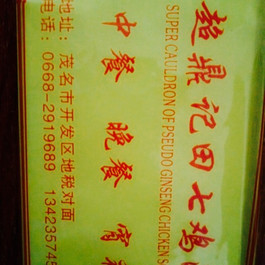 超鼎记田七鸡
SUPER CAULDRON OF PSEUDO GINSENG CHICKEN S
中餐 晚餐 宵
地址：茂名市开发区地税对面
电话：0668-2919689 134235745